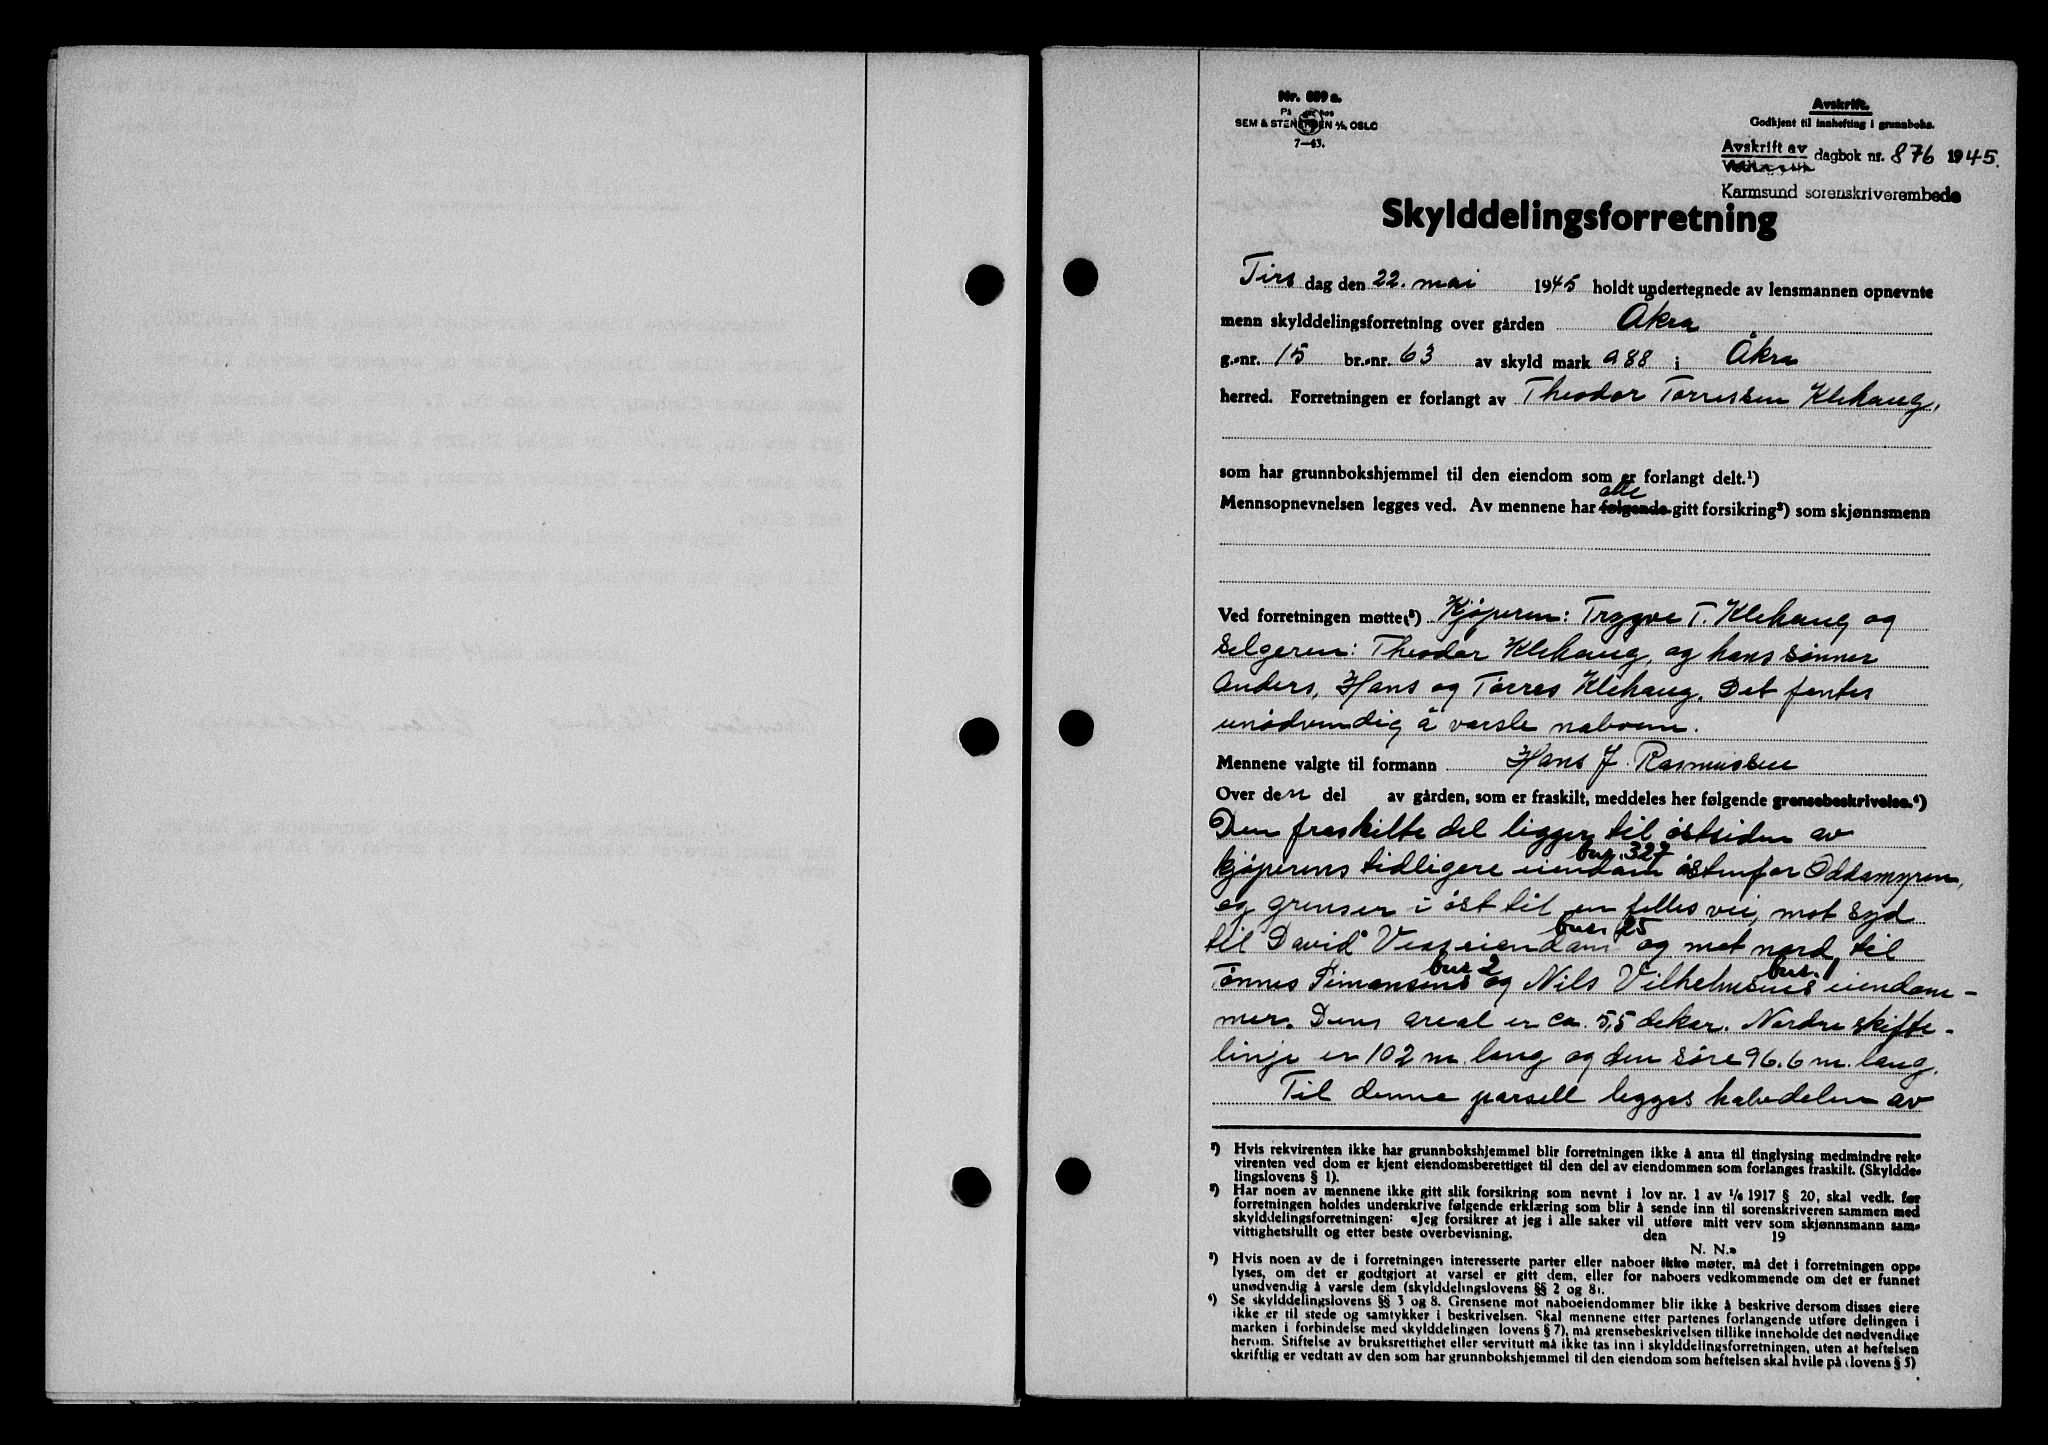 Nr. 889 a.
På
SEM & STENERSEN A/S, OSLO
7—43.
Avskrift.
Godkjent til innhefting i grunnboka.
Avskrift av dagbok nr. 876 1945.
Karmsund sorenskriverembede
Skylddelingsforretning
Tirsdag den 22. mai 1945 holdt undertegnede av lensmannen opnevnte
menn skylddelingsforretning over gården Åkra
g.-nr. 15 br.-nr. 63 av skyld mark 0.88 i Åkra
herred. Forretningen er forlangt av Theodor Torressen Klehaug,
som har grunnbokshjemmel til den eiendom som er forlangt delt.¹)
alle
Mennsopnevnelsen legges ved. Av mennene har følgende gitt forsikring²) som skjønnsmenn
Ved forretningen møtte:³) Kjøperen: Trygve T. Klehaug og
Selgeren: Theodor Klehaug, og hans sønner
Anders, Hans og Torres Klehaug. Det fantes
unødvendig å varsle naboene.
Mennene valgte til formann Hans J. Rasmussen
Over den del av gården, som er fraskilt, meddeles her følgende grensebeskrivelse.⁴)
Den fraskilte del ligger til østsiden av
bnr. 327
kjøperens tidligere eiendom østenfor Oddamyren,
og grenser i øst til en felles vei, mot syd
bnr 25
til David Veas eiendom og mot nord til
bnr 2 bnr. 1
Tønnes Simonsens og Nils Vilhelmsens eiendom-
mer. Dens areal er ca. 5,5 dekar. Nordre skifte-
linje er 102 m. lang og den søre 96.6 m. lang.
Til denne parsell legges halvdelen av
¹) Hvis rekvirenten ikke har grunnbokshjemmel blir forretningen ikke å anta til tinglysing medmindre rek-
virenten ved dom er kjent eiendomsberettiget til den del av eiendommen som forlanges fraskilt. (Skyldde-
lingslovens § 1).
²) Har noen av mennene ikke gitt slik forsikring som nevnt i lov nr. 1 av 1/6 1917 § 20, skal vedk. før
forretningen holdes underskrive følgende erklæring som blir å sende inn til sorenskriveren sammen med
skylddelingsforretningen: «Jeg forsikrer at jeg i alle saker vil utføre mitt verv som skjønnsmann sam-
vittighetsfullt og etter beste overbevisning. den 19
N. N.»
³) Hvis noen av de i forretningen interesserte parter eller naboer ikke møter, må det i forretningen opp-
lyses, om det er godtgjort at varsel er gitt dem, eller for naboers vedkommende om det er funnet
unødvendig å varsle dem (skylddelingslovens §§ 2 og 8).
⁴) Se skylddelingslovens §§ 3 og 8. Grensene mot naboeiendommer blir ikke å beskrive dersom disses eiere
ikke er til stede og samtykker i beskrivelsen. Skal mennene etter partenes forlangende utføre delingen i
marken i forbindelse med skylddelingen (lovens § 7), må grensebeskrivelsen tillike inneholde det nødvendige
herom. Stiftelse av bruksrettighet eller servitutt må ikke tas inn i skylddelingsforretningen, uten at heftelsen
skriftlig er vedtatt av den som har grunnbokshjemmel til den eiendom som heftelsen skal hvile på (lovens § 5)